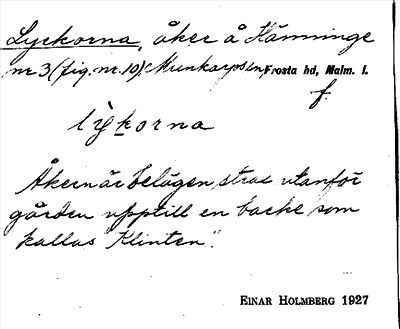 Lyckorna, åker å Hänninge
nr 3 (fig. nr. 10), Munkarps sn, Frosta hd, Malm. l.
f.
lykorna
Åkern är belägen strax utanför
gården upptill en backe som
kallas "Klinten".
EINAR HOLMBERG 1927